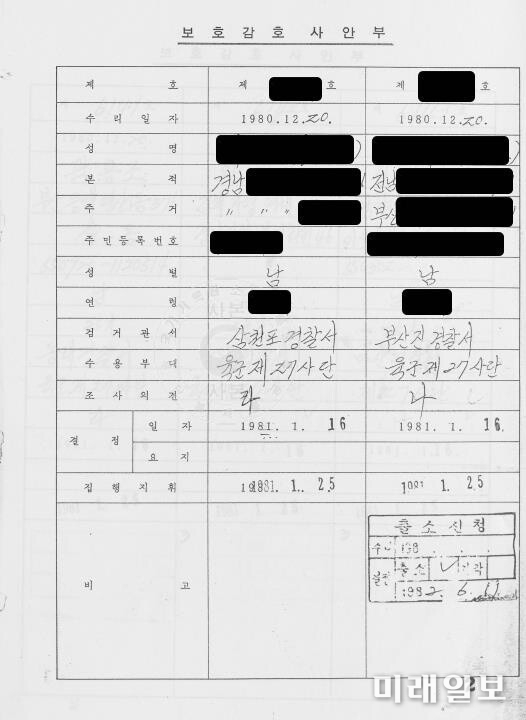 보호감호 사안부
제 호 제 호 제 호
수리일자 1980.12.20. 1980.12.20.
성 명
본 적 경남 전남
주 거 〃 〃 〃 부산
주민등록번호
성 별 남 남
연 령
검거관서 삼천포경찰서 부산진경찰서
수용부대 육군제27사단 육군제27사단
조사의견 라 나
결 정 일 자 1981. 1. 16 1981. 1. 16.
요 지
집행지휘 1981. 1. 25 1981 1. 25
비 고
출소신청
198 . . .
출소 기각
1982. 6. 11
2
미래일보